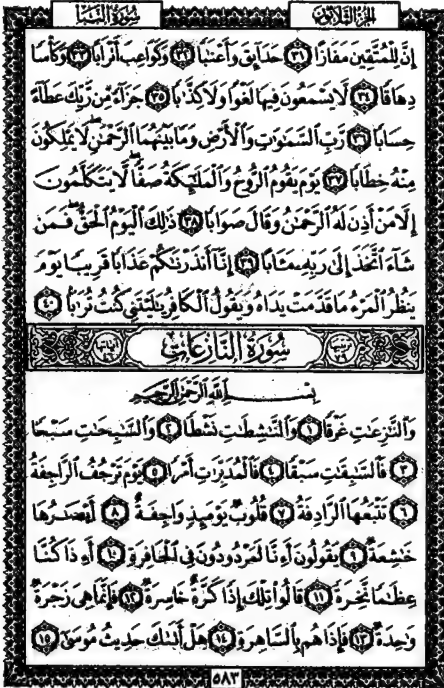 سورة النبأ
الجزء الثلاثون
إِنَّ لِلْمُتَّقِينَ مَفَازًا ٣١ حَدَآئِقَ وَأَعْنَٰبًا ٣٢ وَكَوَاعِبَ أَتْرَابًا ٣٣ وَكَأْسًا
دِهَاقًا ٣٤ لَّا يَسْمَعُونَ فِيهَا لَغْوًا وَلَا كِذَّٰبًا ٣٥ جَزَآءً مِّن رَّبِّكَ عَطَآءً
حِسَابًا ٣٦ رَّبِّ ٱلسَّمَٰوَٰتِ وَٱلْأَرْضِ وَمَا بَيْنَهُمَا ٱلرَّحْمَٰنِ ۖ لَا يَمْلِكُونَ
مِنْهُ خِطَابًا ٣٧ يَوْمَ يَقُومُ ٱلرُّوحُ وَٱلْمَلَٰٓئِكَةُ صَفًّا ۖ لَّا يَتَكَلَّمُونَ
إِلَّا مَنْ أَذِنَ لَهُ ٱلرَّحْمَٰنُ وَقَالَ صَوَابًا ٣٨ ذَٰلِكَ ٱلْيَوْمُ ٱلْحَقُّ ۖ فَمَن
شَآءَ ٱتَّخَذَ إِلَىٰ رَبِّهِۦ مَـَٔابًا ٣٩ إِنَّآ أَنذَرْنَٰكُمْ عَذَابًا قَرِيبًا يَوْمَ
يَنظُرُ ٱلْمَرْءُ مَا قَدَّمَتْ يَدَاهُ وَيَقُولُ ٱلْكَافِرُ يَٰلَيْتَنِى كُنتُ تُرَٰبًۢا ٤٠
سورة النازعات
بسم الله الرحمن الرحيم
وَٱلنَّٰزِعَٰتِ غَرْقًا ١ وَٱلنَّٰشِطَٰتِ نَشْطًا ٢ وَٱلسَّٰبِحَٰتِ سَبْحًا
٣ فَٱلسَّٰبِقَٰتِ سَبْقًا ٤ فَٱلْمُدَبِّرَٰتِ أَمْرًا ٥ يَوْمَ تَرْجُفُ ٱلرَّاجِفَةُ
٦ تَتْبَعُهَا ٱلرَّادِفَةُ ٧ قُلُوبٌ يَوْمَئِذٍ وَاجِفَةٌ ٨ أَبْصَٰرُهَا
خَٰشِعَةٌ ٩ يَقُولُونَ أَءِنَّا لَمَرْدُودُونَ فِى ٱلْحَافِرَةِ ١٠ أَءِذَا كُنَّا
عِظَٰمًا نَّخِرَةً ١١ قَالُوا۟ تِلْكَ إِذًا كَرَّةٌ خَاسِرَةٌ ١٢ فَإِنَّمَا هِىَ زَجْرَةٌ
وَٰحِدَةٌ ١٣ فَإِذَا هُم بِٱلسَّاهِرَةِ ١٤ هَلْ أَتَىٰكَ حَدِيثُ مُوسَىٰٓ ١٥
٥٨٣